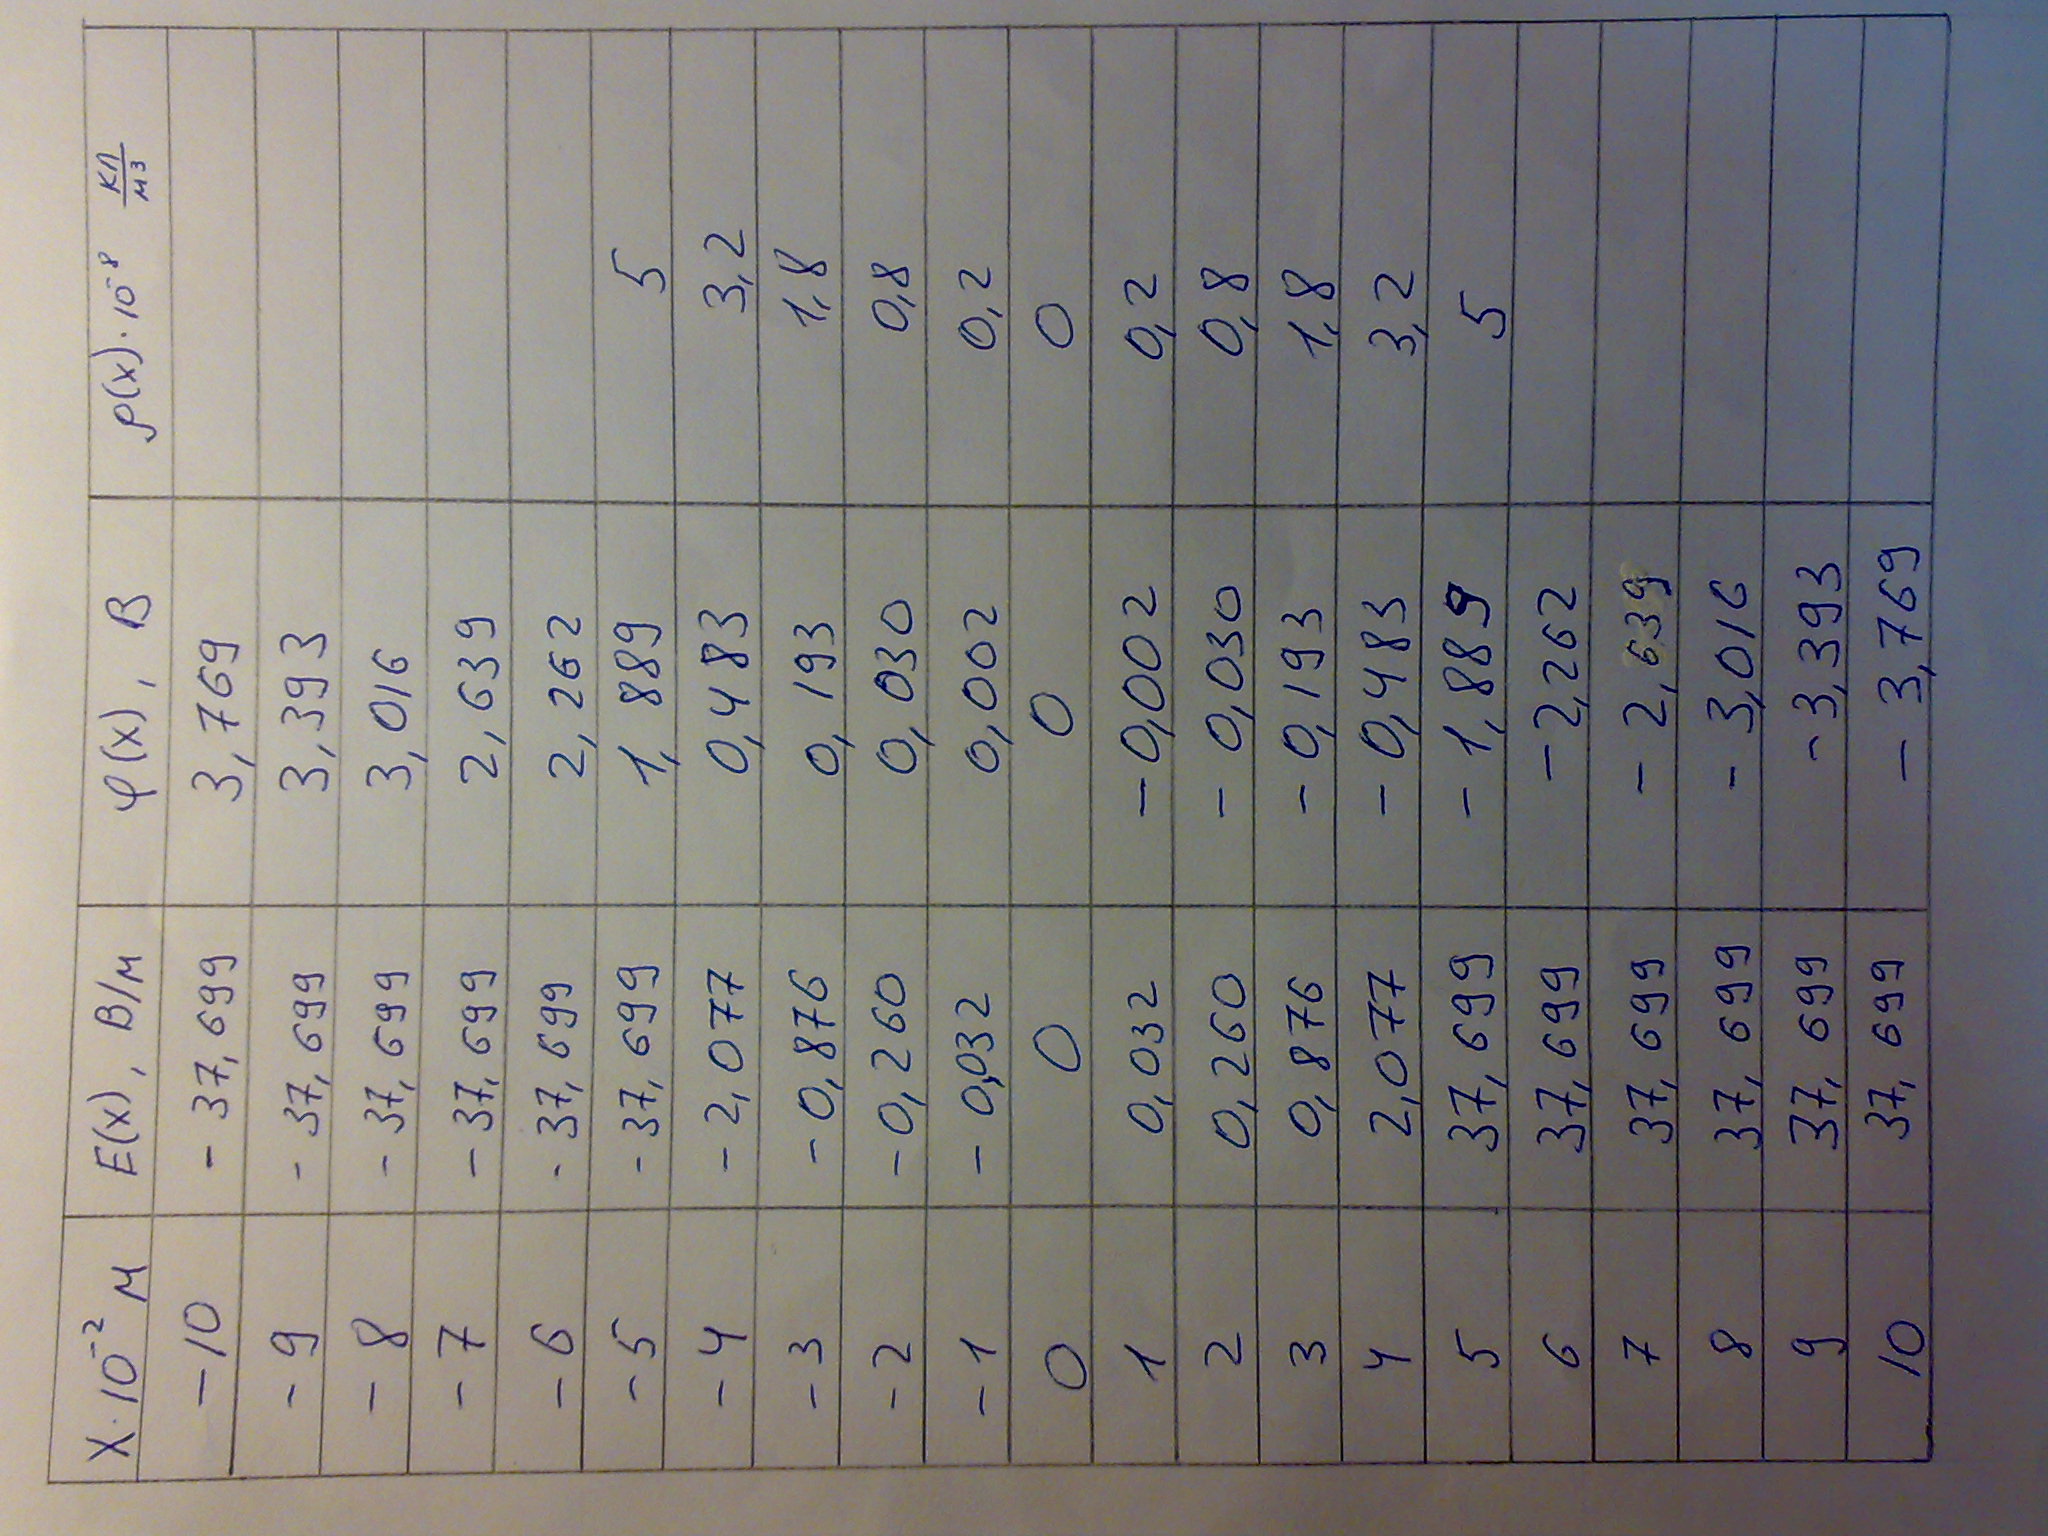 X·10⁻² м E(x), В/м φ(x), В ρ(x)·10⁻⁸ Кл/м³
-10 -37,699 3,769
-9 -37,699 3,393
-8 -37,699 3,016
-7 -37,699 2,639
-6 -37,699 2,262
-5 -37,699 1,889 5
-4 -2,077 0,483 3,2
-3 -0,876 0,193 1,8
-2 -0,260 0,030 0,8
-1 -0,032 0,002 0,2
0 0 0 0
1 0,032 -0,002 0,2
2 0,260 -0,030 0,8
3 0,876 -0,193 1,8
4 2,077 -0,483 3,2
5 37,699 -1,889 5
6 37,699 -2,262
7 37,699 -2,639
8 37,699 -3,016
9 37,699 -3,393
10 37,699 -3,769